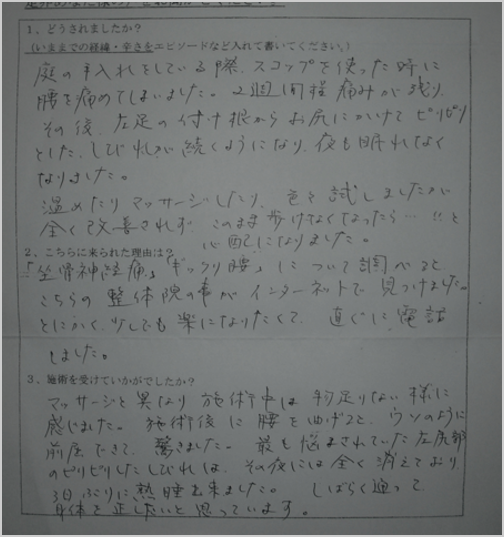 1、どうされましたか?
(いままでの経緯・辛さをエピソードなど入れて書いてください。)
庭の手入れをしている際、スコップを使った時に
腰を痛めてしまいました。2週間程痛みが残り、
その後、左足の付け根からお尻にかけてピリピリ
とした、しびれが続くようになり、夜も眠れなく
なりました。
温めたりマッサージしたり、色々試しましたが
全く改善されず、このまま歩けなくなったら…!!と
心配になりました。
2、こちらに来られた理由は?
「坐骨神経痛」「ギックリ腰」について調べると
こちらの整体院の事がインターネットで見つけました。
とにかく、少しでも楽になりたくて、直ぐに電話
しました。
3、施術を受けていかがでしたか?
マッサージと異なり施術中は物足りない様に
感じました。施術後に腰を曲げると、ウソのように
前屈できて、驚きました。最も悩まされていた左尻部
のピリピリしたしびれは、その夜には全く消えており
3日ぶりに熟睡出来ました。しばらく通って
身体を正したいと思っています。